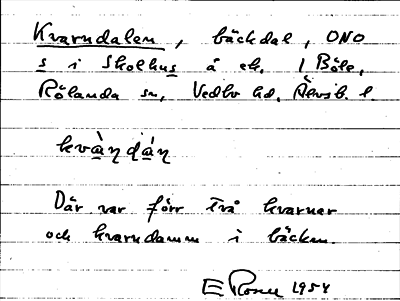 Kvarndalen, bäckdal, ONO
s i Skolhus å ek. 1 Böle,
Rölanda sn, Vedbo hd, Älvsb. l.
kvàn dán
Där var förr två kvarnar
och kvarndamm i bäcken.
E 1954